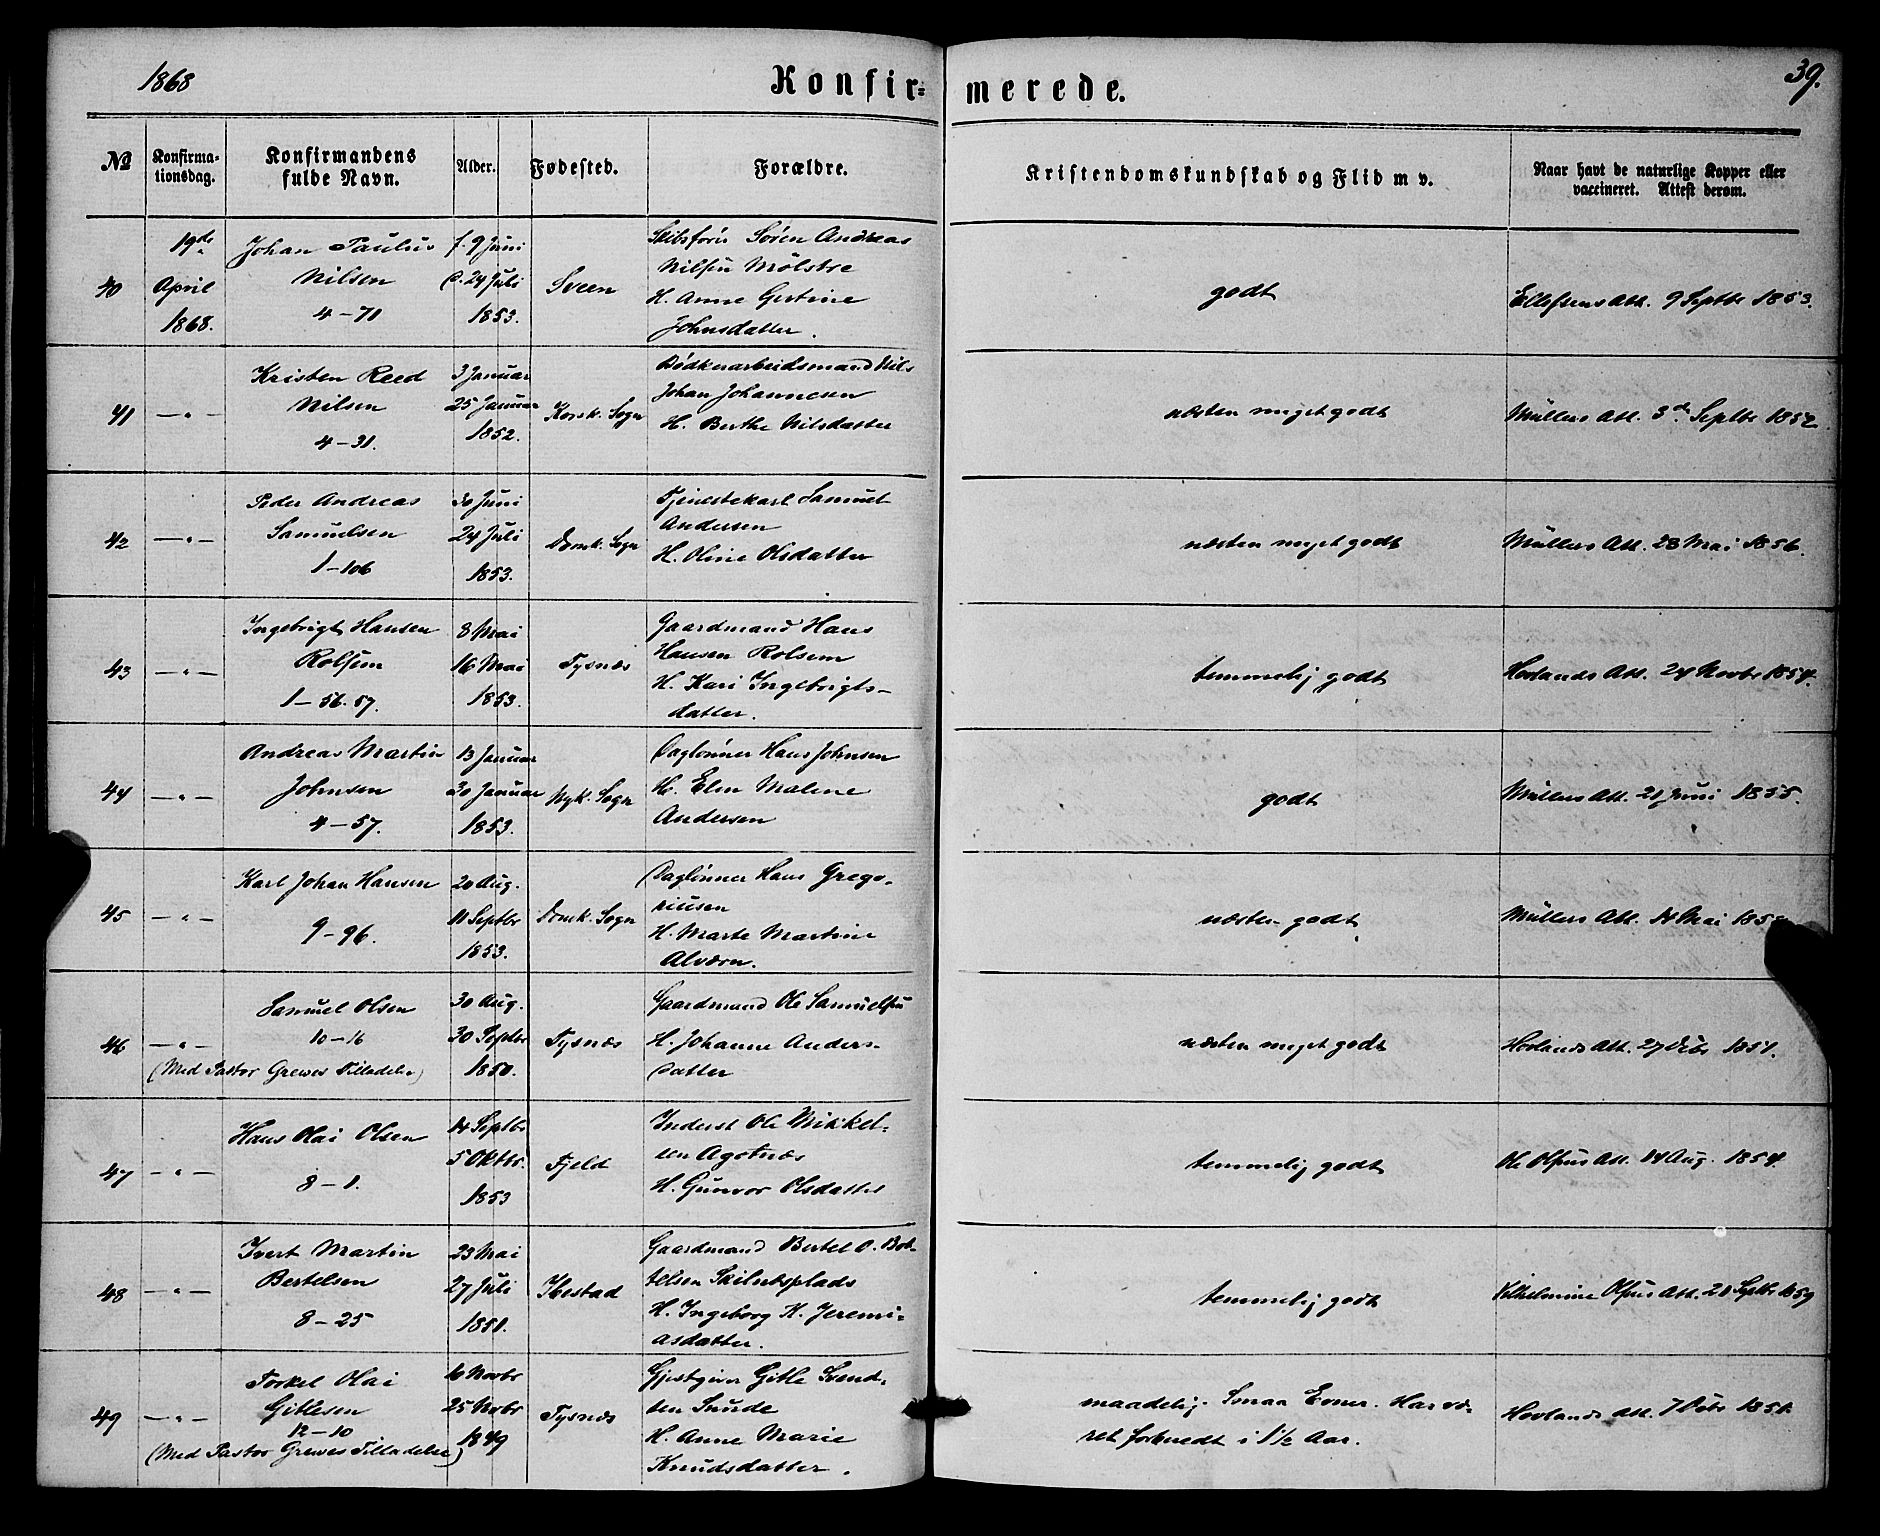 1868
Konfir- merede.
39.
№ Konfirma-tionsdag. Konfirmandens fulde Navn. Alder. Fødested. Forældre. Kristendomskundskab og Flid m v. Naar havt de naturlige Kopper eller vaccineret. Attest derom.
40
19de
April
1868.
Johan Paulus
Nilsen
4-71
f. 9 Juni
d. 24 Juli
1853.
Sveen
Skibsfører Sören Andreas
Nilsen Mölstre
H. Anne Gertine
Johnsdatter.
godt
Ellefsens Att. 9 Septbr 1853.
41
— " —
Kristen Reed
Nilsen
4-31.
3 Januar
25 Januar
1852.
Korsk. Sogn
Bødkerarbeidsmand Nils
Johan Johannesen
H. Berthe Nilsdatter
næsten meget godt
Müllers Att. 3de Septbr 1852
42
— " —
Peder Andreas
Samuelsen
1-106
30 Juni
24 Juli
1853.
Domk. Sogn
Tjenestekarl Samuel
Andersen
H. Oline Olsdatter
næsten meget godt
Müllers Att. 28 Mai 1856.
43
— " —
Ingebrigt Hansen
Rolsem
1-56.57.
8 Mai
16 Mai
1853.
Tysnæs
Gaardmand Hans
Hansen Rolsem
H. Kari Ingebrigts-
datter.
temmelig godt
Hovlands Att. 24 Novbr 1854.
44
— " —
Andreas Martin
Johnsen
4-57.
13 Januar
30 Januar
1853.
Nyk. Sogn
Daglönner Hans Johnsen
H. Elen Malene
Andersen
godt
Müllers Att. 21 Juni 1855.
45
— " —
Karl Johan Hansen
9-96.
20 Aug.
11 Septbr
1853.
Domk. Sogn
Daglönner Hans Grego-
riusen
H. Marte Martine
Alværn.
næsten godt
Müllers Att. 14 Mai
46
— " —
Samuel Olsen
10-16
(Med Pastor Grewes Tilladelse)
30 Aug.
30 Septbr
1850.
Tysnæs
Gaardmand Ole Samuelsen
H. Johanne Anders-
datter
næsten meget godt
Hovlands Att. 27 Dcbr 1851.
47
— " —
Hans Olai Olsen
8-1.
14 Septbr
5 Oktbr.
1853
Fjeld
Inderst Ole Mikkel-
sen Agotnæs
H. Gunvor Olsdatter
temmelig godt
Ole Olsens Att. 14 Aug. 1854.
48
— " —
Ivert Martin
Bertelsen
8-25
23 Mai
27 Juli
1851.
Ibestad
Gaardmand Bertel O. Ber-
telsen Skilnetsplads
H. Ingeborg H. Jeremi-
asdatter.
temmelig godt
Vilhelmine Olsens Att. 21 Septbr 1859
49
— " —
Torkel Olai
Gitlesen
12-10
(Med Pastor Grewes Tilladelse)
6 Novbr
25 Novbr
1849
Tysnæs
Gjestgiver Gitle Svend-
sen Snude
H. Anne Marie
Knudsdatter.
maadelig. Smaa Evner. Har væ-
ret forberedt i 1½ Aar.
Hovlands att. 7 Dcbr 1851.